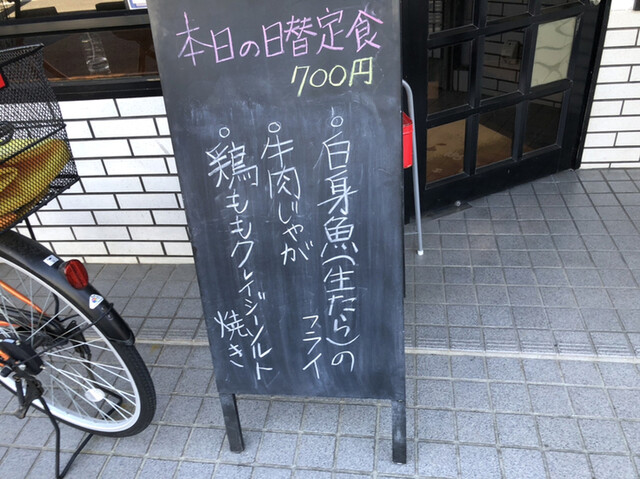 本日の日替定食
700円
○白身魚(生たら)の
フライ
○牛肉じゃが
○鶏ももクレイジーソルト
焼き